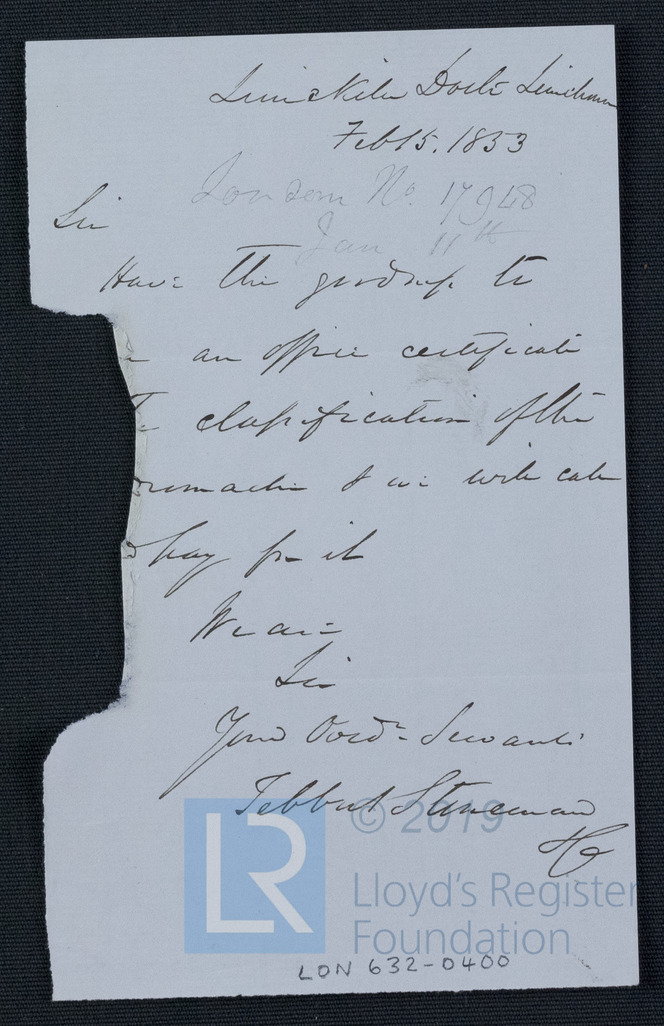 Limekiln Dock Limehouse
Feb 15. 1853
London No. 17948
Jan 11th
Sir
Have the goodness to
an office certificate
classification of the
& we will call
pay for it
We are
Sir
Your Servants
Tebbut Stoneman
& Co
LR
© 2019
Lloyd's Register
Foundation
LON 632-0400